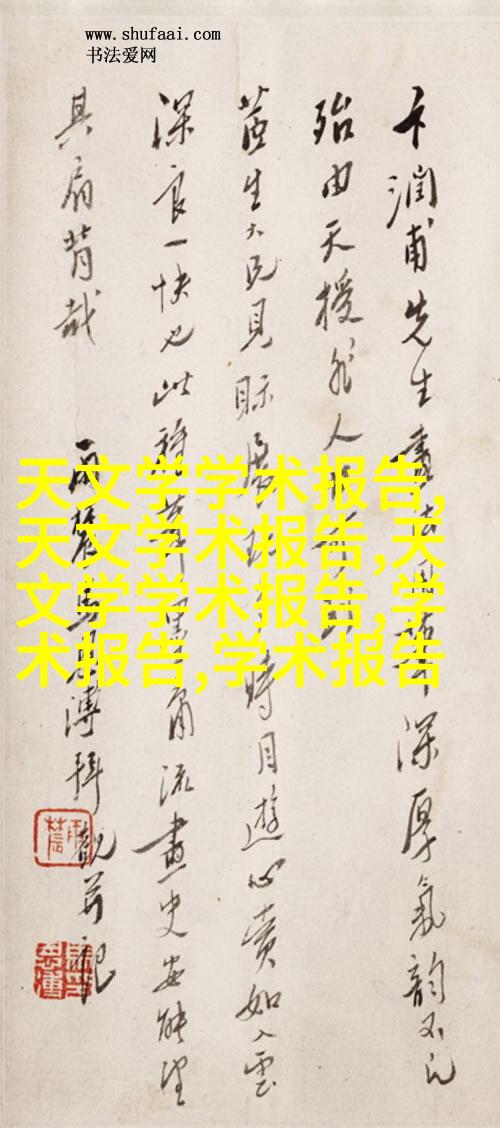 www.shufaai.com
书法爱网
卞润甫先生画
深厚气韵不凡
殆由天授非人
生大兄见眎
时目游心赏如入云
深良一快也此
角流画史安能望
其肩背哉
溥拜观并记
天文学学术报告,
天文学术报告,天
文学学术报告,学
术报告,学术报告